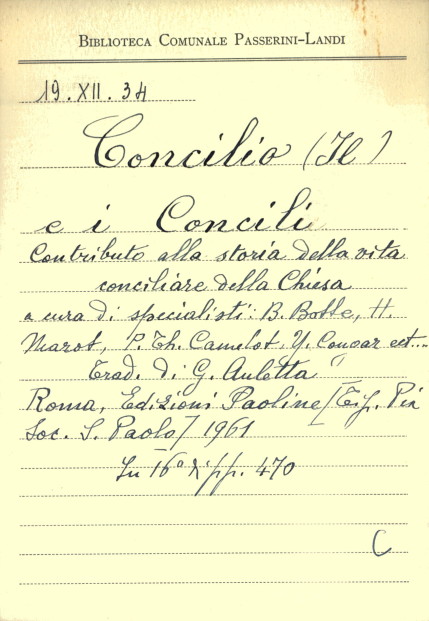 BIBLIOTECA COMUNALE PASSERINI-LANDI
19.XII.34
Concilio (Il)
e i Concili
Contributo alla storia della vita
conciliare della Chiesa
a cura di specialisti: B. Botte, H.
Marot, P. Th. Camelot, Y. Congar ect...
Trad. di G. Auletta
Roma, Edizioni Paoline [Tip. Pia
Soc. S. Paolo] 1961
In 16° di pp. 470
C